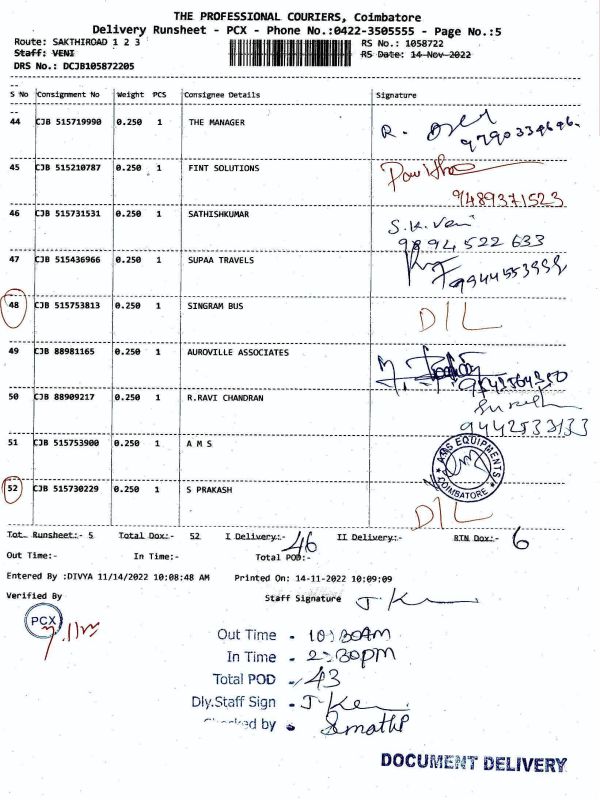 THE PROFESSIONAL COURIERS, Coimbatore
Delivery Runsheet - PCX - Phone No.:0422-3505555 - Page No.:5
Route: SAKTHIROAD 1 2 3 RS No.: 1058722
Staff: VENI RS Date: 14-Nov-2022
DRS No.: DCJB105872205
S No Consignment No Weight PCS Consignee Details Signature
44 CJB 515719990 0.250 1 THE MANAGER R.
45 CJB 515210787 0.250 1 FINT SOLUTIONS
9489371523
46 CJB 515731531 0.250 1 SATHISHKUMAR S.K. Veni
9894 522 633
47 CJB 515436966 0.250 1 SUPAA TRAVELS
48 CJB 515753813 0.250 1 SINGRAM BUS D/L
49 CJB 88981165 0.250 1 AUROVILLE ASSOCIATES
50 CJB 88909217 0.250 1 R.RAVI CHANDRAN Suresh
9442533133
51 CJB 515753900 0.250 1 A M S AMS EQUIPMENTS * COIMBATORE *
52 CJB 515730229 0.250 1 S PRAKASH D/L
Tot. Runsheet:- 5 Total Dox:- 52 I Delivery:- 46 II Delivery:- RTN Dox:- 6
Out Time:- In Time:- Total POD:-
Entered By :DIVYA 11/14/2022 10:08:48 AM Printed On: 14-11-2022 10:09:09
Verified By Staff Signature
PCX
Out Time - 10:30AM
In Time - 2:30pm
Total POD - 43
Dly.Staff Sign -
Checked by
DOCUMENT DELIVERY